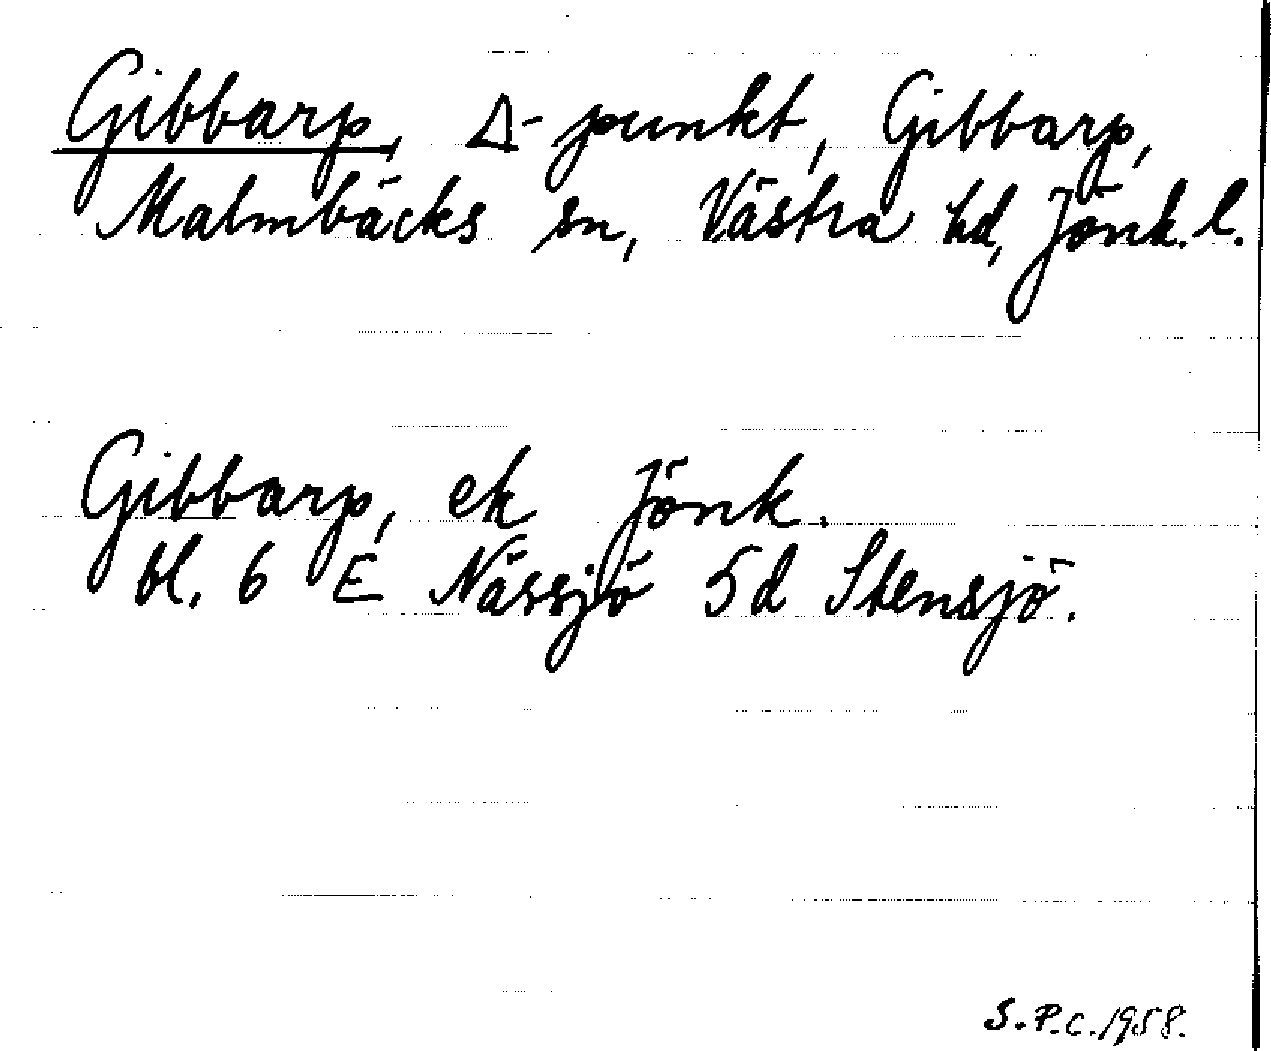 Gibbarp, Δ-punkt, Gibbarp,
Malmbäcks sn, Västra hd, Jönk. l.
Gibbarp, ek Jönk.
bl. 6 E Nässjö 5d Stensjö.
S.P.C. 1958.